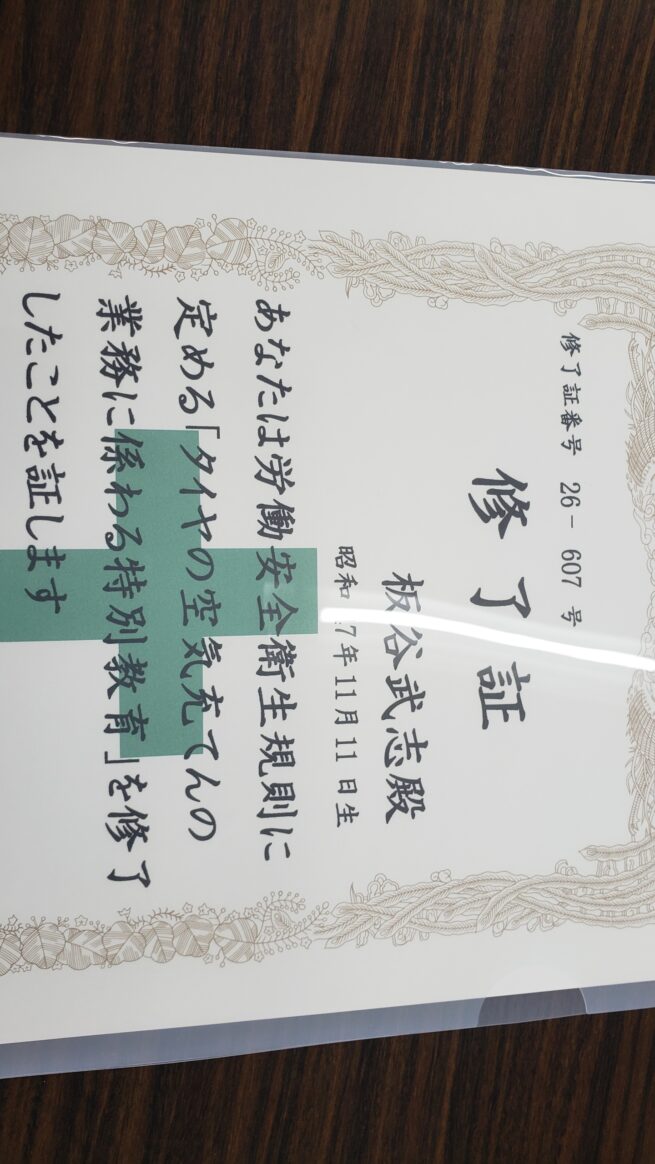 修了証番号 26－607 号
修了証
板谷武志殿
昭和 7年11月11日生
あなたは労働安全衛生規則に
定める「タイヤの空気充てんの
業務に係わる特別教育」を修了
したことを証します